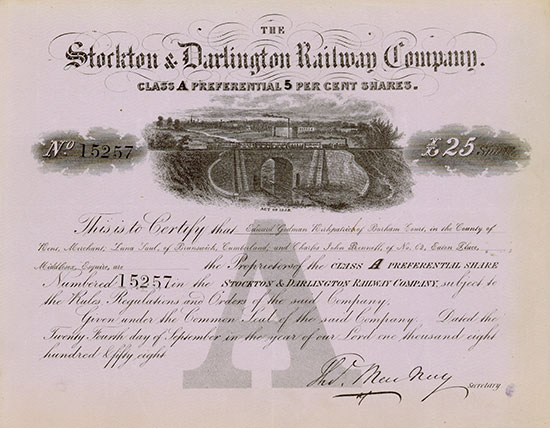 THE
Stockton & Darlington Railway Company.
CLASS A PREFERENTIAL 5 PER CENT SHARES.
No 15257
£25
This is to Certify that Edward Godman Kirkpatrick of Barham Court, in the County of
Merchant, of Brunswick, Cumberland, and Charles John of No.
Esquire, are the Proprietors of the CLASS A PREFERENTIAL SHARE
Numbered 15257 in the STOCKTON & DARLINGTON RAILWAY COMPANY, subject to
the Rules Regulations and Orders of the said Company.
Given under the Common Seal of the said Company. Dated the
Twenty Fourth day of September in the year of our Lord one thousand eight
hundred & fifty eight
A
Secretary